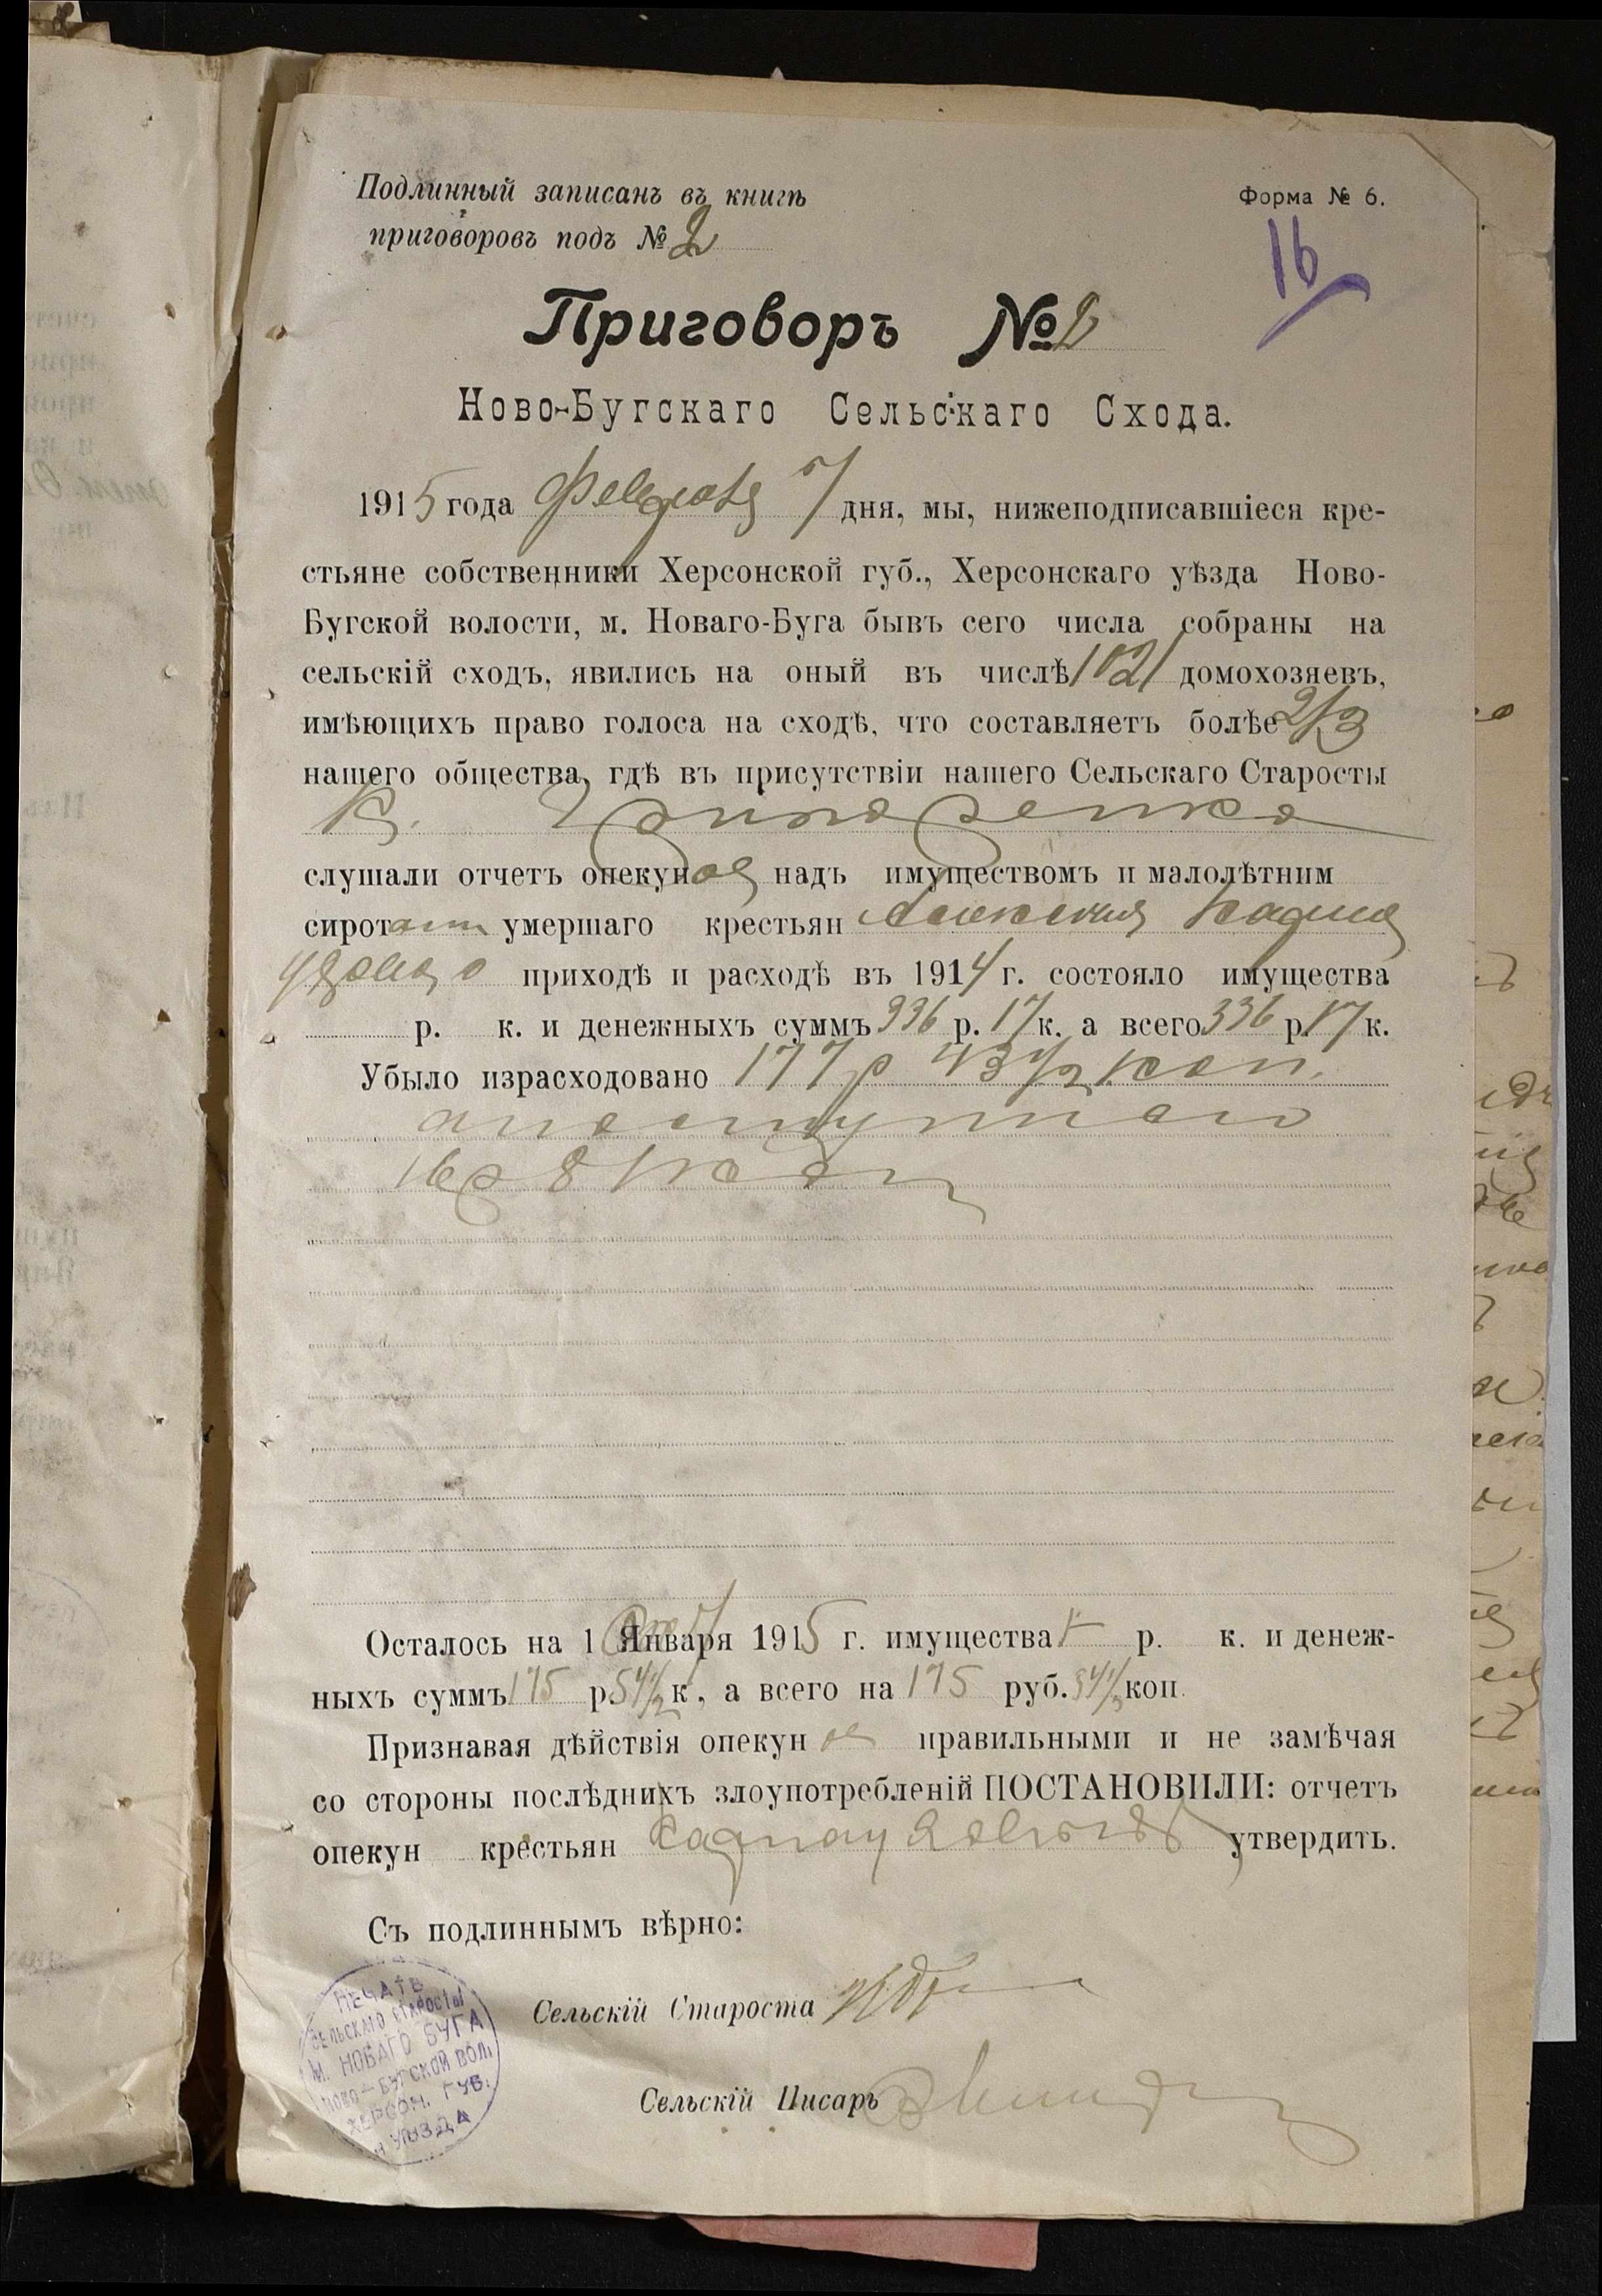 Подлинный записанъ въ книгѣ
Форма № 6.
приговоровъ подъ № 2
16
Приговоръ № 2
Ново-Бугскаго Сельскаго Схода.
1915 года Февраля 7 дня, мы, нижеподписавшіеся кре-
стьяне собственники Херсонской губ., Херсонскаго уѣзда Ново-
Бугской волости, м. Новаго-Буга бывъ сего числа собраны на
сельскій сходъ, явились на оный въ числѣ 1021 домохозяевъ,
имѣющихъ право голоса на сходѣ, что составляетъ болѣе 2/3
нашего общества, гдѣ въ присутствіи нашего Сельскаго Старосты
слушали отчетъ опекуновъ надъ имуществомъ и малолѣтним
сиротами умершаго крестьян Алексѣя
о приходѣ и расходѣ въ 1914 г. состояло имущества
р. к. и денежныхъ суммъ 336 р. 17 к. а всего 336 р. 17 к.
Убыло израсходовано 177 р 43 1/2 коп.
а поступило
16 р 81 коп
Осталось на 1 Января 1915 г. имущества р. к. и денеж-
ныхъ суммъ 175 р 54 1/2 к, а всего на 175 руб. 54 1/2 коп.
Признавая дѣйствія опекун правильными и не замѣчая
со стороны послѣднихъ злоупотребленій ПОСТАНОВИЛИ: отчетъ
опекун крестьян утвердить.
Съ подлиннымъ вѣрно:
Сельскій Староста
Сельскій Писарь
ПЕЧАТЬ
СЕЛЬСКАГО СТАРОСТЫ
М. НОВАГО БУГА
НОВО-БУГСКОЙ ВОЛ.
ХЕРСОН. ГУБ.
и УѢЗДА